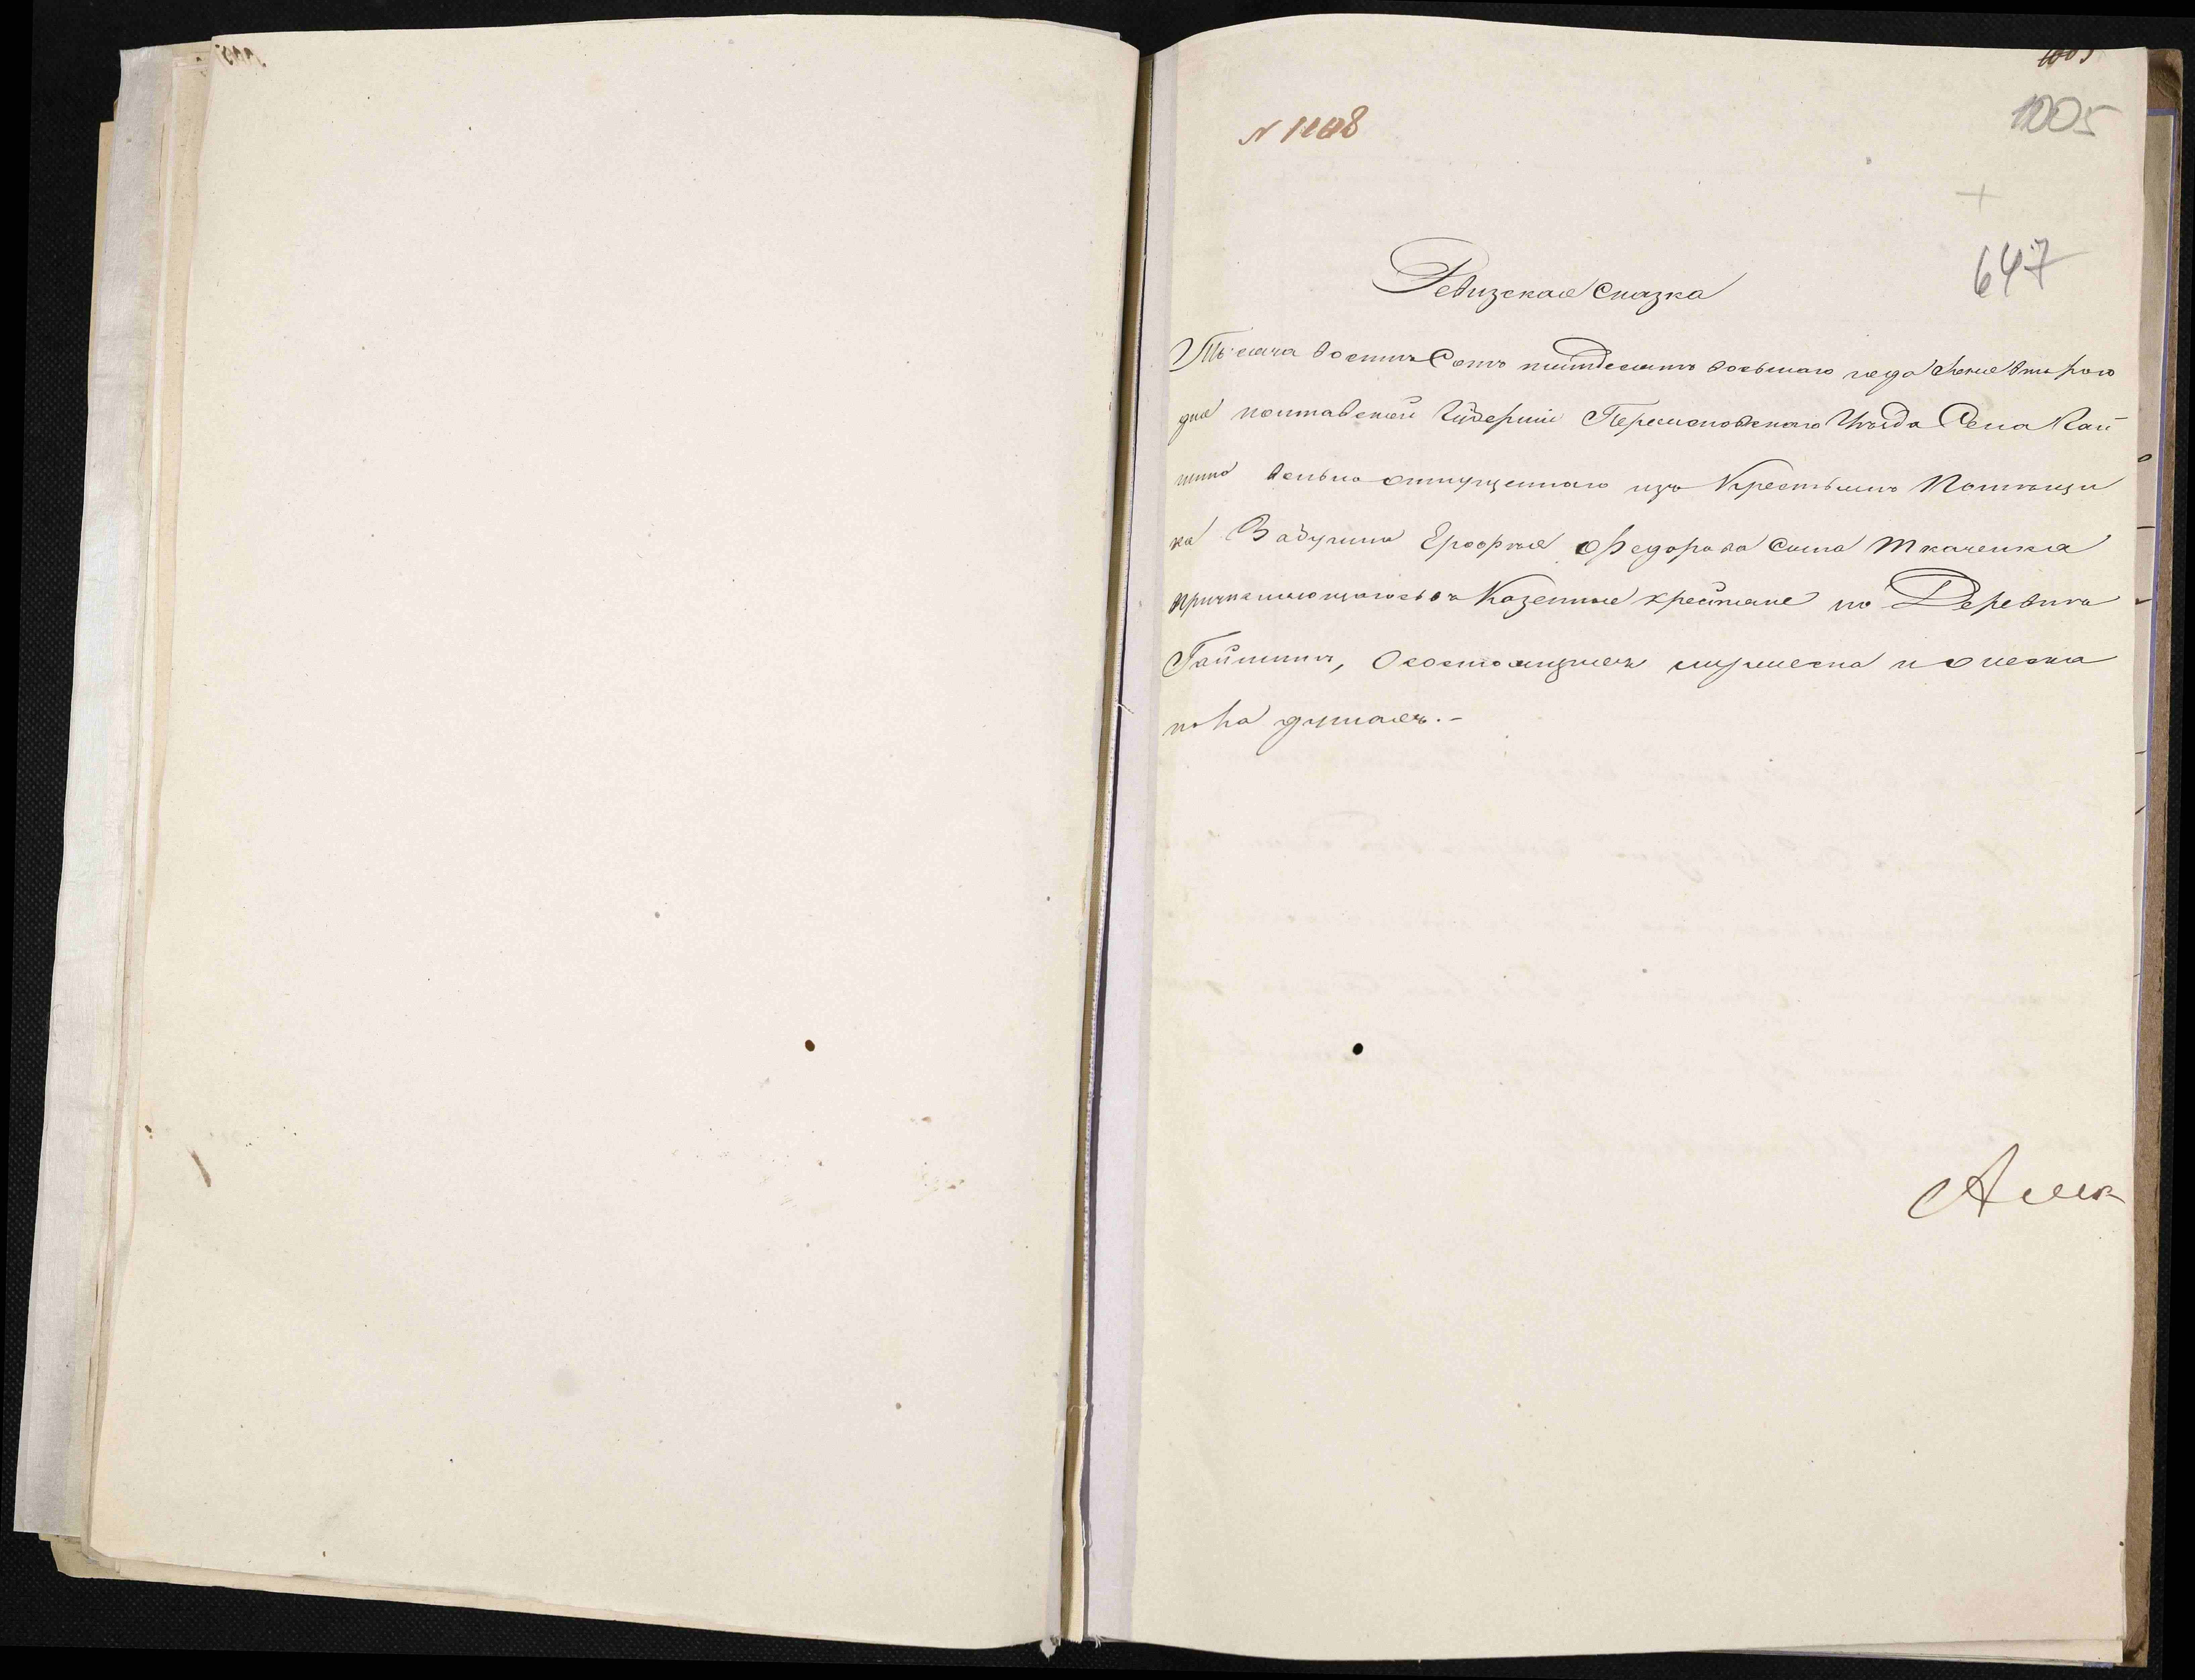 1005
N 1108
1005
+
647
Ревизская Сказка
Тысяча восемъ Сотъ пятдесятъ восьмаго года Июня второго
дня полтавской Губерніи Переясловскаго Уезда Села Кай
вольно отпущеннаго изъ Крестьянъ Помѣщи
ка Ерофѣя Федорова Сына Ткаченка
причисляющагося въ Казенные крестяне по Деревнѣ
Гайшинъ, О состоящихъ мужеска и женска
пола душахъ.-